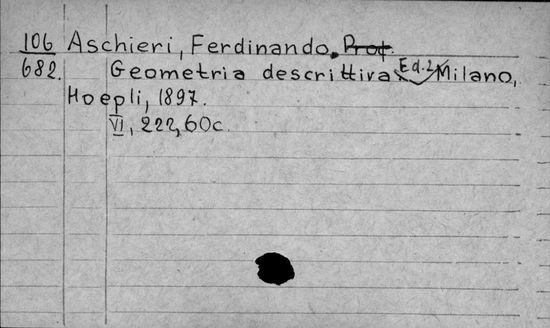 106 Aschieri, Ferdinando. Prof.
682. Geometria descrittiva. Ed. 2. Milano,
Hoepli, 1897.
VI, 222, 60c.